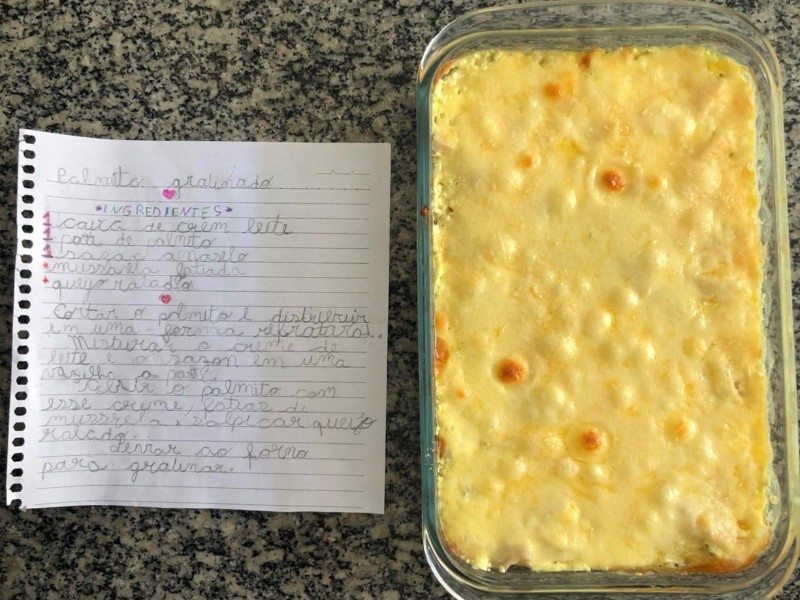 Palmito gratinado
*INGREDIENTES*
1 caixa de crem leite
1 pote de palmito
1 sazon amarelo
• mussarela fatiada
• queijo ralado
Cortar o palmito e distribuir
em uma forma refratará.
Misturar o creme de
leite e o sazon em uma
vazilha a parte.
Cobrir o palmito com
esse creme, fatias de
mussrela, salpicar queijo
ralado.
Levar ao forno
para gratinar.